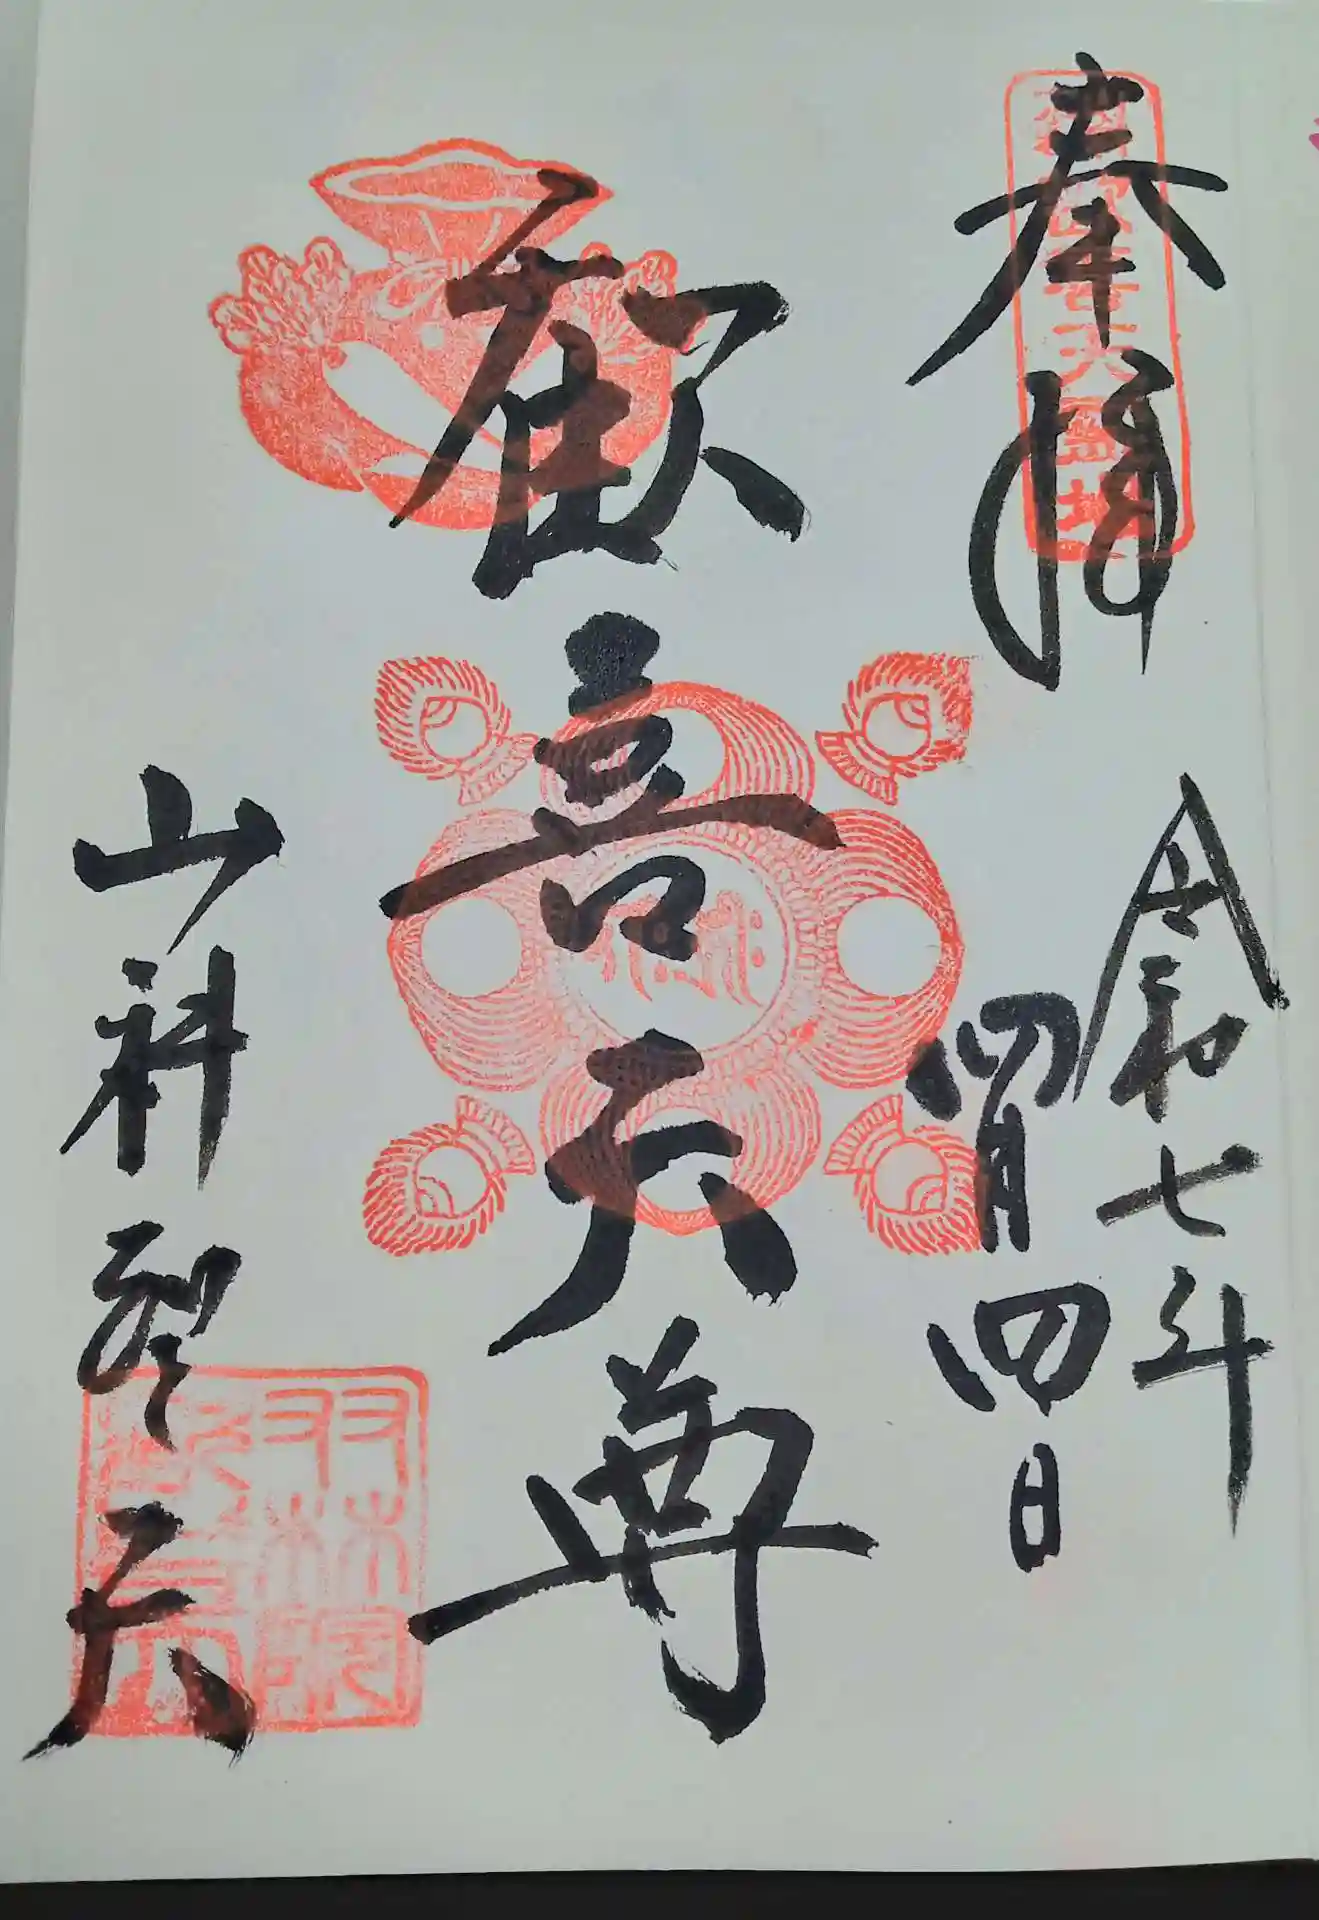 奉拝
令和七年
四月四日
歓喜天尊
山科聖天
双林院